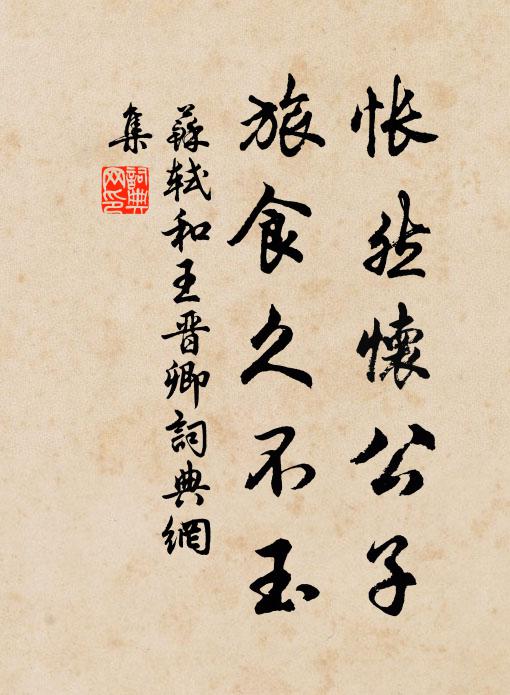 悵然懷公子
旅食久不玉
蘇軾和王晉卿詞典網
集
詞典
网印